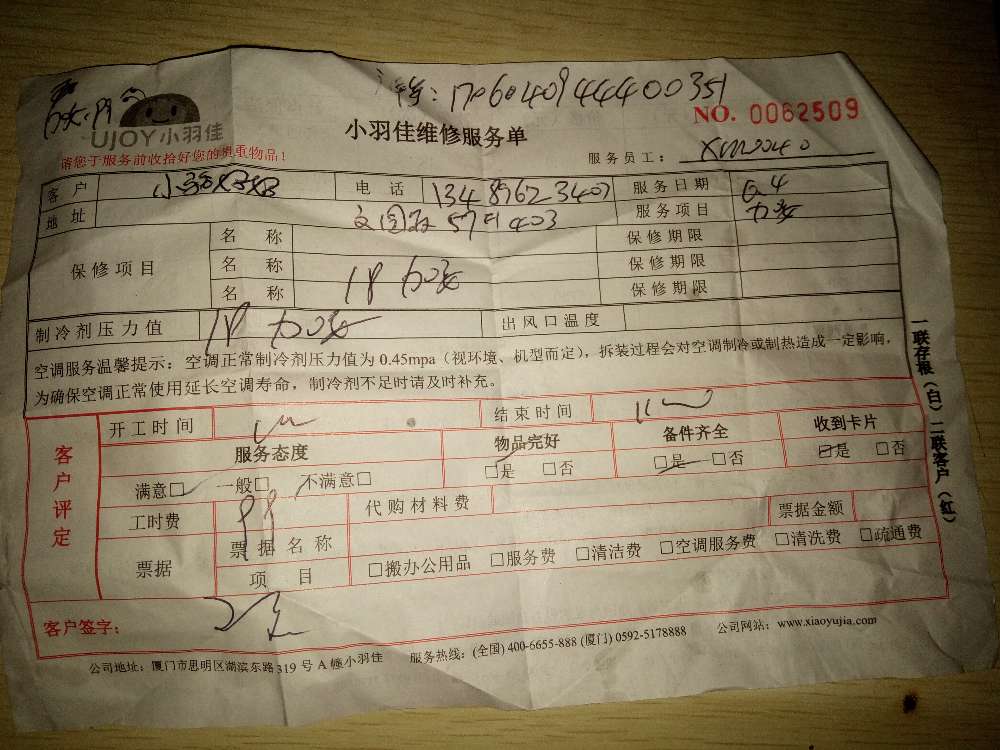 1706040944400351
UJOY小羽佳
小羽佳维修服务单
NO. 0062509
请您于服务前收拾好您的贵重物品!
服务员工: XM0040
客户 电话 13489623407 服务日期 6.4
地址 57-403 服务项目
保修项目 名称 保修期限
名称 保修期限
名称 保修期限
制冷剂压力值 出风口温度
空调服务温馨提示:空调正常制冷剂压力值为0.45mpa(视环境、机型而定),拆装过程会对空调制冷或制热造成一定影响,
为确保空调正常使用延长空调寿命,制冷剂不足时请及时补充。
客户评定
开工时间 结束时间
服务态度 物品完好 备件齐全 收到卡片
满意□ 一般□ 不满意□ □是 □否 □是 □否 □是 □否
工时费 代购材料费 票据金额
票据 票据名称
项目 □搬办公用品 □服务费 □清洁费 □空调服务费 □清洗费 □疏通费
客户签字:
公司地址:厦门市思明区湖滨东路319号A幢小羽佳 服务热线:(全国)400-6655-888 (厦门) 0592-5178888 公司网站:www.xiaoyujia.com
一联存根(白)二联客户(红)